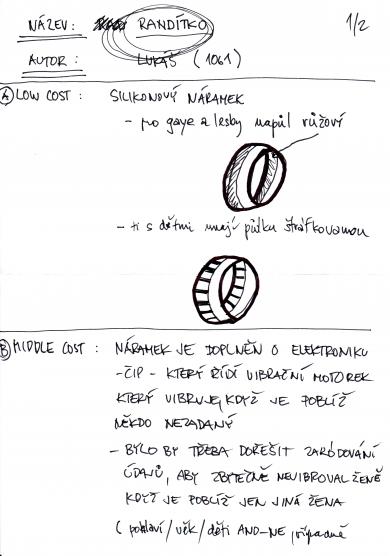 NÁZEV: RANDÍTKO 1/2
AUTOR: LUKÁŠ (1061)
A LOW COST: SILIKONOVÝ NÁRAMEK
- pro gaye a lesby napůl růžový
- ti s dětmi mají půlku štráfkovanou
B MIDDLE COST: NÁRAMEK JE DOPLNĚN O ELEKTRONIKU
- ČIP - KTERÝ ŘÍDÍ VIBRAČNÍ MOTOREK
KTERÝ VIBRUJE, KDYŽ JE POBLÍŽ
NĚKDO NEZADANÝ
- BYLO BY TŘEBA DOŘEŠIT ZAKÓDOVÁNÍ
ÚDAJŮ, ABY ZBYTEČNĚ NEVIBROVAL ŽENĚ
KDYŽ JE POBLÍŽ JEN JINÁ ŽENA
(pohlaví/věk/děti ANO-NE, případně